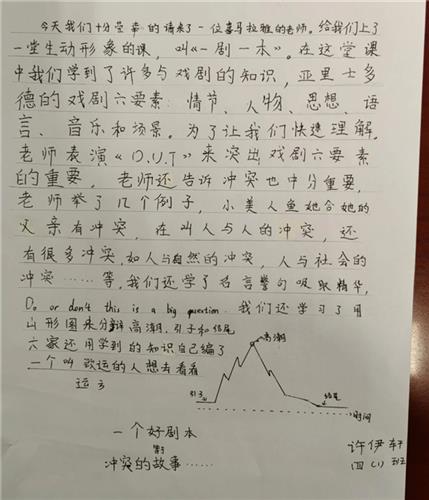 今天我们十分荣幸的请来了一位喜马拉雅的老师。给我们上了
一堂生动形象的课，叫《一剧一本》。在这堂课
中我们学到了许多与戏剧的知识，亚里士多
德的戏剧六要素：情节、人物、思想、语
言、音乐和场景。为了让我们快速理解，
老师表演《O.U.T》来突出戏剧六要素
的重要，老师还告诉冲突也中分重要，
老师举了几个例子，小美人鱼她合她的
父亲有冲突，在叫人与人的冲突，还
有很多冲突，如人与自然的冲突，人与社会的
冲突……等，我们还学了名言警句吸取精华，
Do or don't this is a big question. 我们还学习了用
山形图来分辩高潮，引子和结尾
大家还用学到的知识自己编了
一个叫歌运的人想去看看
运了
高潮
引子
结尾
时间
一个好剧本
冲突的故事……
许伊轩
四(1)班